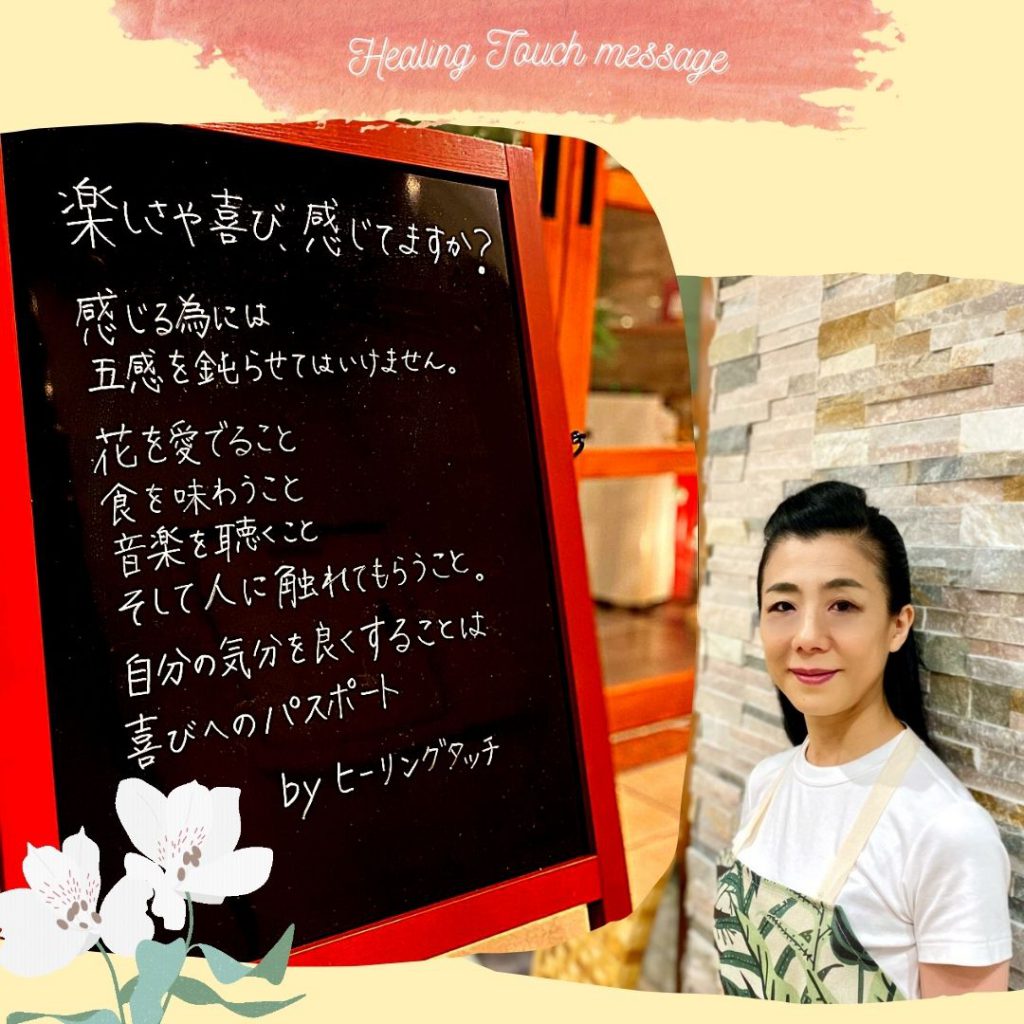 Healing Touch message
楽しさや喜び、感じてますか?
感じる為には
五感を鈍らせてはいけません。
花を愛でること
食を味わうこと
音楽を聴くこと
そして人に触れてもらうこと。
自分の気分を良くすることは
喜びへのパスポート
by ヒーリングタッチ